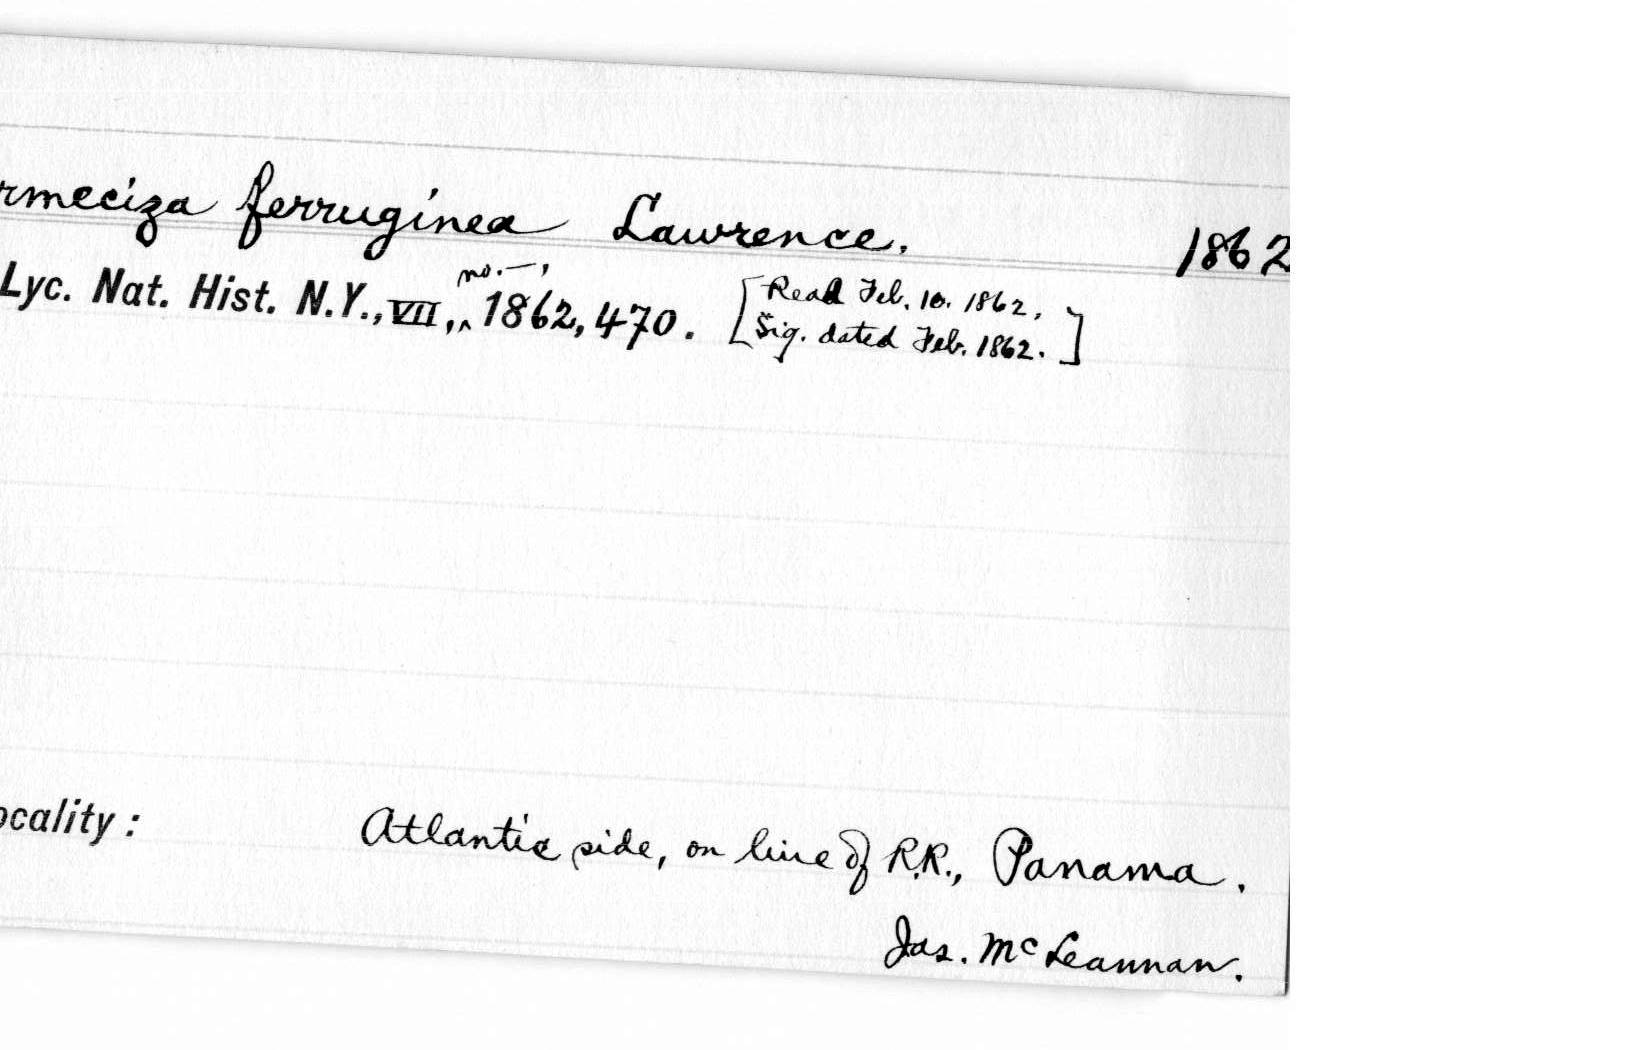 rmeciza ferruginea Lawrence. 1862
Lyc. Nat. Hist. N.Y., VII, ^ no. —, 1862, 470. [Read Feb. 10. 1862.
Sig. dated Feb. 1862.]
ocality: Atlantic side, on line of R.R., Panama.
Jas. McLeannan.